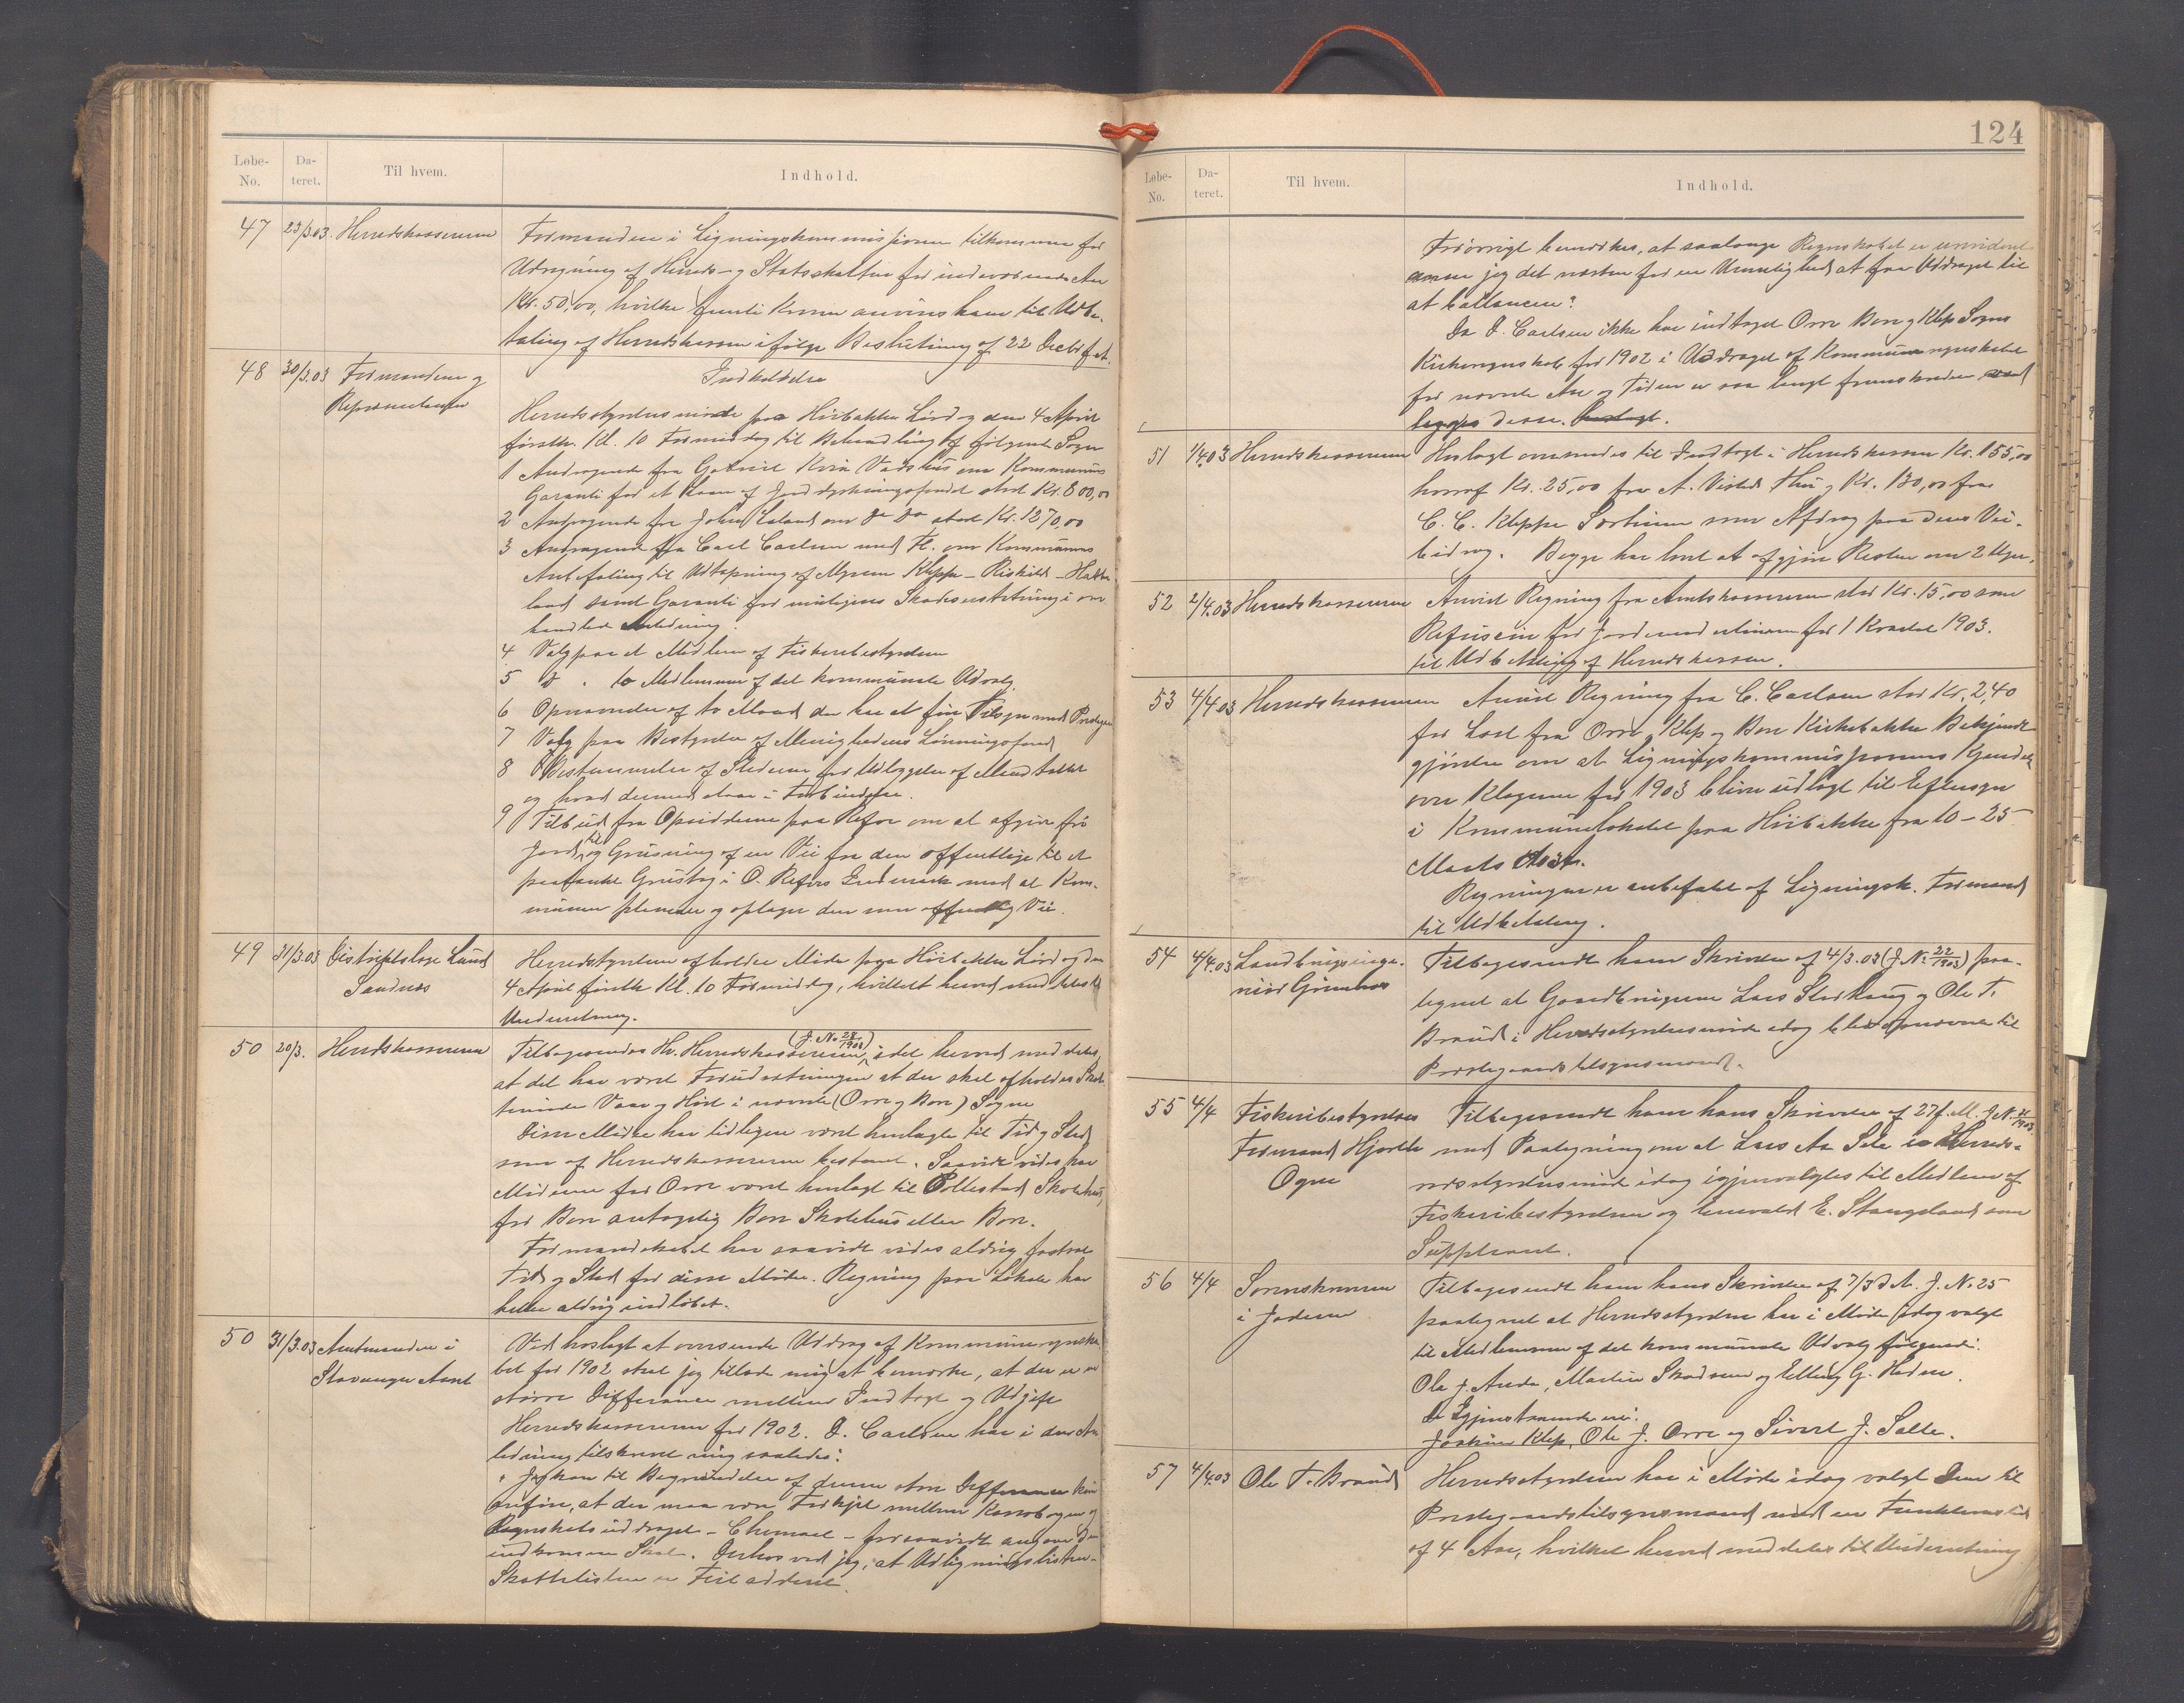 Løbe-No. Da-teret. Til hvem. Indhold.
47 23/3.03. Herredskassereren Formanden i Ligningskommissionen tilkommer for
Udregning af Herreds- og Statsskatten for indeværende Aar
Kr. 50,00, hvilke femti Kroner anvises ham til Udbe-
taling af Herredskassen ifølge Beslutning af 22 Decbr f. A.
48 30/3.03 Formændene og Indkaldelse
Repræsentanter
Herredsstyrelsesmøde paa Høibakken Lørdag den 4 April
førstk. Kl. 10 Formiddag til Behandling af følgende Sager
1 Andragende fra Gabriel Kvia Vadshus om Kommunens
Garanti for et Laan af Jorddyrkningsfondet stort Kr. 800,00
2 Andragende fra John Laland om do do stort Kr. 1270,00
3 Andragende fra Carl Carlsen med Fl. om Kommunens
Anbefaling til Udtapning af Myren Kleppe - Riskild - Hatte
land samt Garanti for muligens Skadeserstatning i om
handlede Anledning.
4 Valg paa et Medlem af Fiskeribestyrelsen
5 d . to Medlemmer af det kommunale Udvalg.
6 Opnævnelse af to Mænd der har at føre Tilsyn med Prestegaar
7 Valg paa Bestyrelse af Menighedens Lønningsfond
8 Bestemmelse af Stederne for Udlæggelse af Mandtallet
og hvad dermed staar i Forbindelse.
9 Tilbud fra Opsidderne paa Refve om at afgive fri
Jord til og Grusning af en Vei fra den offentlige til et
paatænkt Grustag i O. Refves Indmark mod at Kom-
munen planerer og optager den som offentlig Vei.
49 31/3.03 Distriktslæge Lund Herredsstyrelsen afholder Møde paa Høibakken Lørdag den
Sandnæs 4 April førstk Kl. 10 Formiddag, hvilket herved meddeles til
Underretning.
50 20/3. Herredskassereren Tilbagesendes Hr. Herredskassereren (J. No 28/1903), idet herved meddeles,
at det har været Forudsætningen at der skal afholdes Skat-
teminde Vaar og Høst i nævnte (Orre og Bore) Sogne
Disse Møder har tidligere været henlagte til Tid og Sted
som af Herredskassereren bestemt. Saavidt vides har
Møderne for Orre været henlagt til Pollestad Skolehus,
for Bore antagelig Bore Skolehus eller Bore.
Formandskabet har saavidt vides aldrig fastsat
Tid og Sted for disse Møder. Regning paa Lokale har
heller aldrig indløbet.
50 31/3.03 Amtmanden i Ved hoslagt at oversende Uddrag af Kommuneregnska-
Stavanger Amt bet for 1902 skal jeg tillade mig at bemærke, at der er en
større Differance mellem Indtægt og Udgift
Herredskassereren for 1902. D. Carlsen har i den An-
ledning tilskrevet mig saaledes:
" Jeg kan til Begrundelse af denne store Differance kun
anføre, at der maa være Forskjel mellem Kassebogen og
Regnskabsuddraget - Chemaet - forsaavidt angaar den
indkomne Skat. Derhos ved jeg, at Udligningslisten -
Skattelisten er Feiladderet.
124
Løbe-No. Da-teret. Til hvem. Indhold.
Forøvrigt bemærkes, at saalænge Regnskabet er urevideret
anser jeg det næsten for en Umulighed at faa Uddraget til
at ballancere?
Da D. Carlsen ikke har indtaget Orre Bore og Klep Sogns
Kirkeregnskab for 1902 i Uddraget af Kommuneregnskabet
for nævnte Aar og Tiden er saa langt fremskreden
lægges disse
51 1/4.03 Herredskassereren Hoslagt oversendes til Indtægt i Herredskassen Kr. 155,00
hvoraf Kr. 25,00 fra A. Visted Thu og Kr. 130,00 fra
C. C. Kleppe Sørheim som Afdrag paa deres Vei-
bidrag. Begge har lovet at afgjøre Resten om 2 Uger.
52 2/4.03 Herredskassereren Anvist Regning fra Amtskassereren stor Kr. 15,00 som
Refusion for Jordemoderlønnen for 1 Kvartal 1903.
til Udbetaling af Herredskassen.
53 4/4.03 Herredskassereren Anvist Regning fra C. Carlsen stor Kr. 2,40
for Læst fra Orre, Klep og Bore Kirkebakke Bekjendt
gjørelse om at Ligningskommissionens Kjendelse
over Klagerne for 1903 bliver udlagt til Eftersyn
i Kommunelokalet paa Høibakke fra 10-25
Marts
Regningen er anbefalet af Ligningsk. Formand
til Udbetaling.
54 4/4.03 Landbrugsinge- Tilbagesendt ham Skrivelse af 4/3.03 (J No 22/1903) paa-
niør Grimnes tegnet at Gaardbrugerne Lars Storhaug og Ole T.
Braud i Herredsstyrelsesmøde idag blev opnævnte til
Prestegaardstilsynsmænd.
55 4/4 Fiskeribestyrelses Tilbagesendt ham hans Skrivelse af 27 f. M. J N.
Formand Hjorth med Paategning om at Lars Aa Sele i Herreds-
Ogne redsstyrelsesmøde idag igjenvalgtes til Medlem af
Fiskeribestyrelsen og Enevald E. Stangeland som
Suppleant.
56 4/4 Sorenskriveren Tilbagesendt ham hans Skrivelse af 7/3 d A. J. No 25
i Jæderen paategnet at Herredsstyrelsen har i Møde idag valgt
til Medlemmer af det kommunale Udvalg følgende:
Ole J. Anda, Martin Skadsem og Elling G. Hodne.
De Igjenstaaende er:
Joakim Klep, Ole J. Orre og Sivert J. Salte.
57 4/4.03 Ole T. Braud Herredsstyrelsen har i Møde idag valgt Dem til
Prestegaardstilsynsmand med en Funktionstid
af 4 Aar, hvilket herved meddeles til Underretning